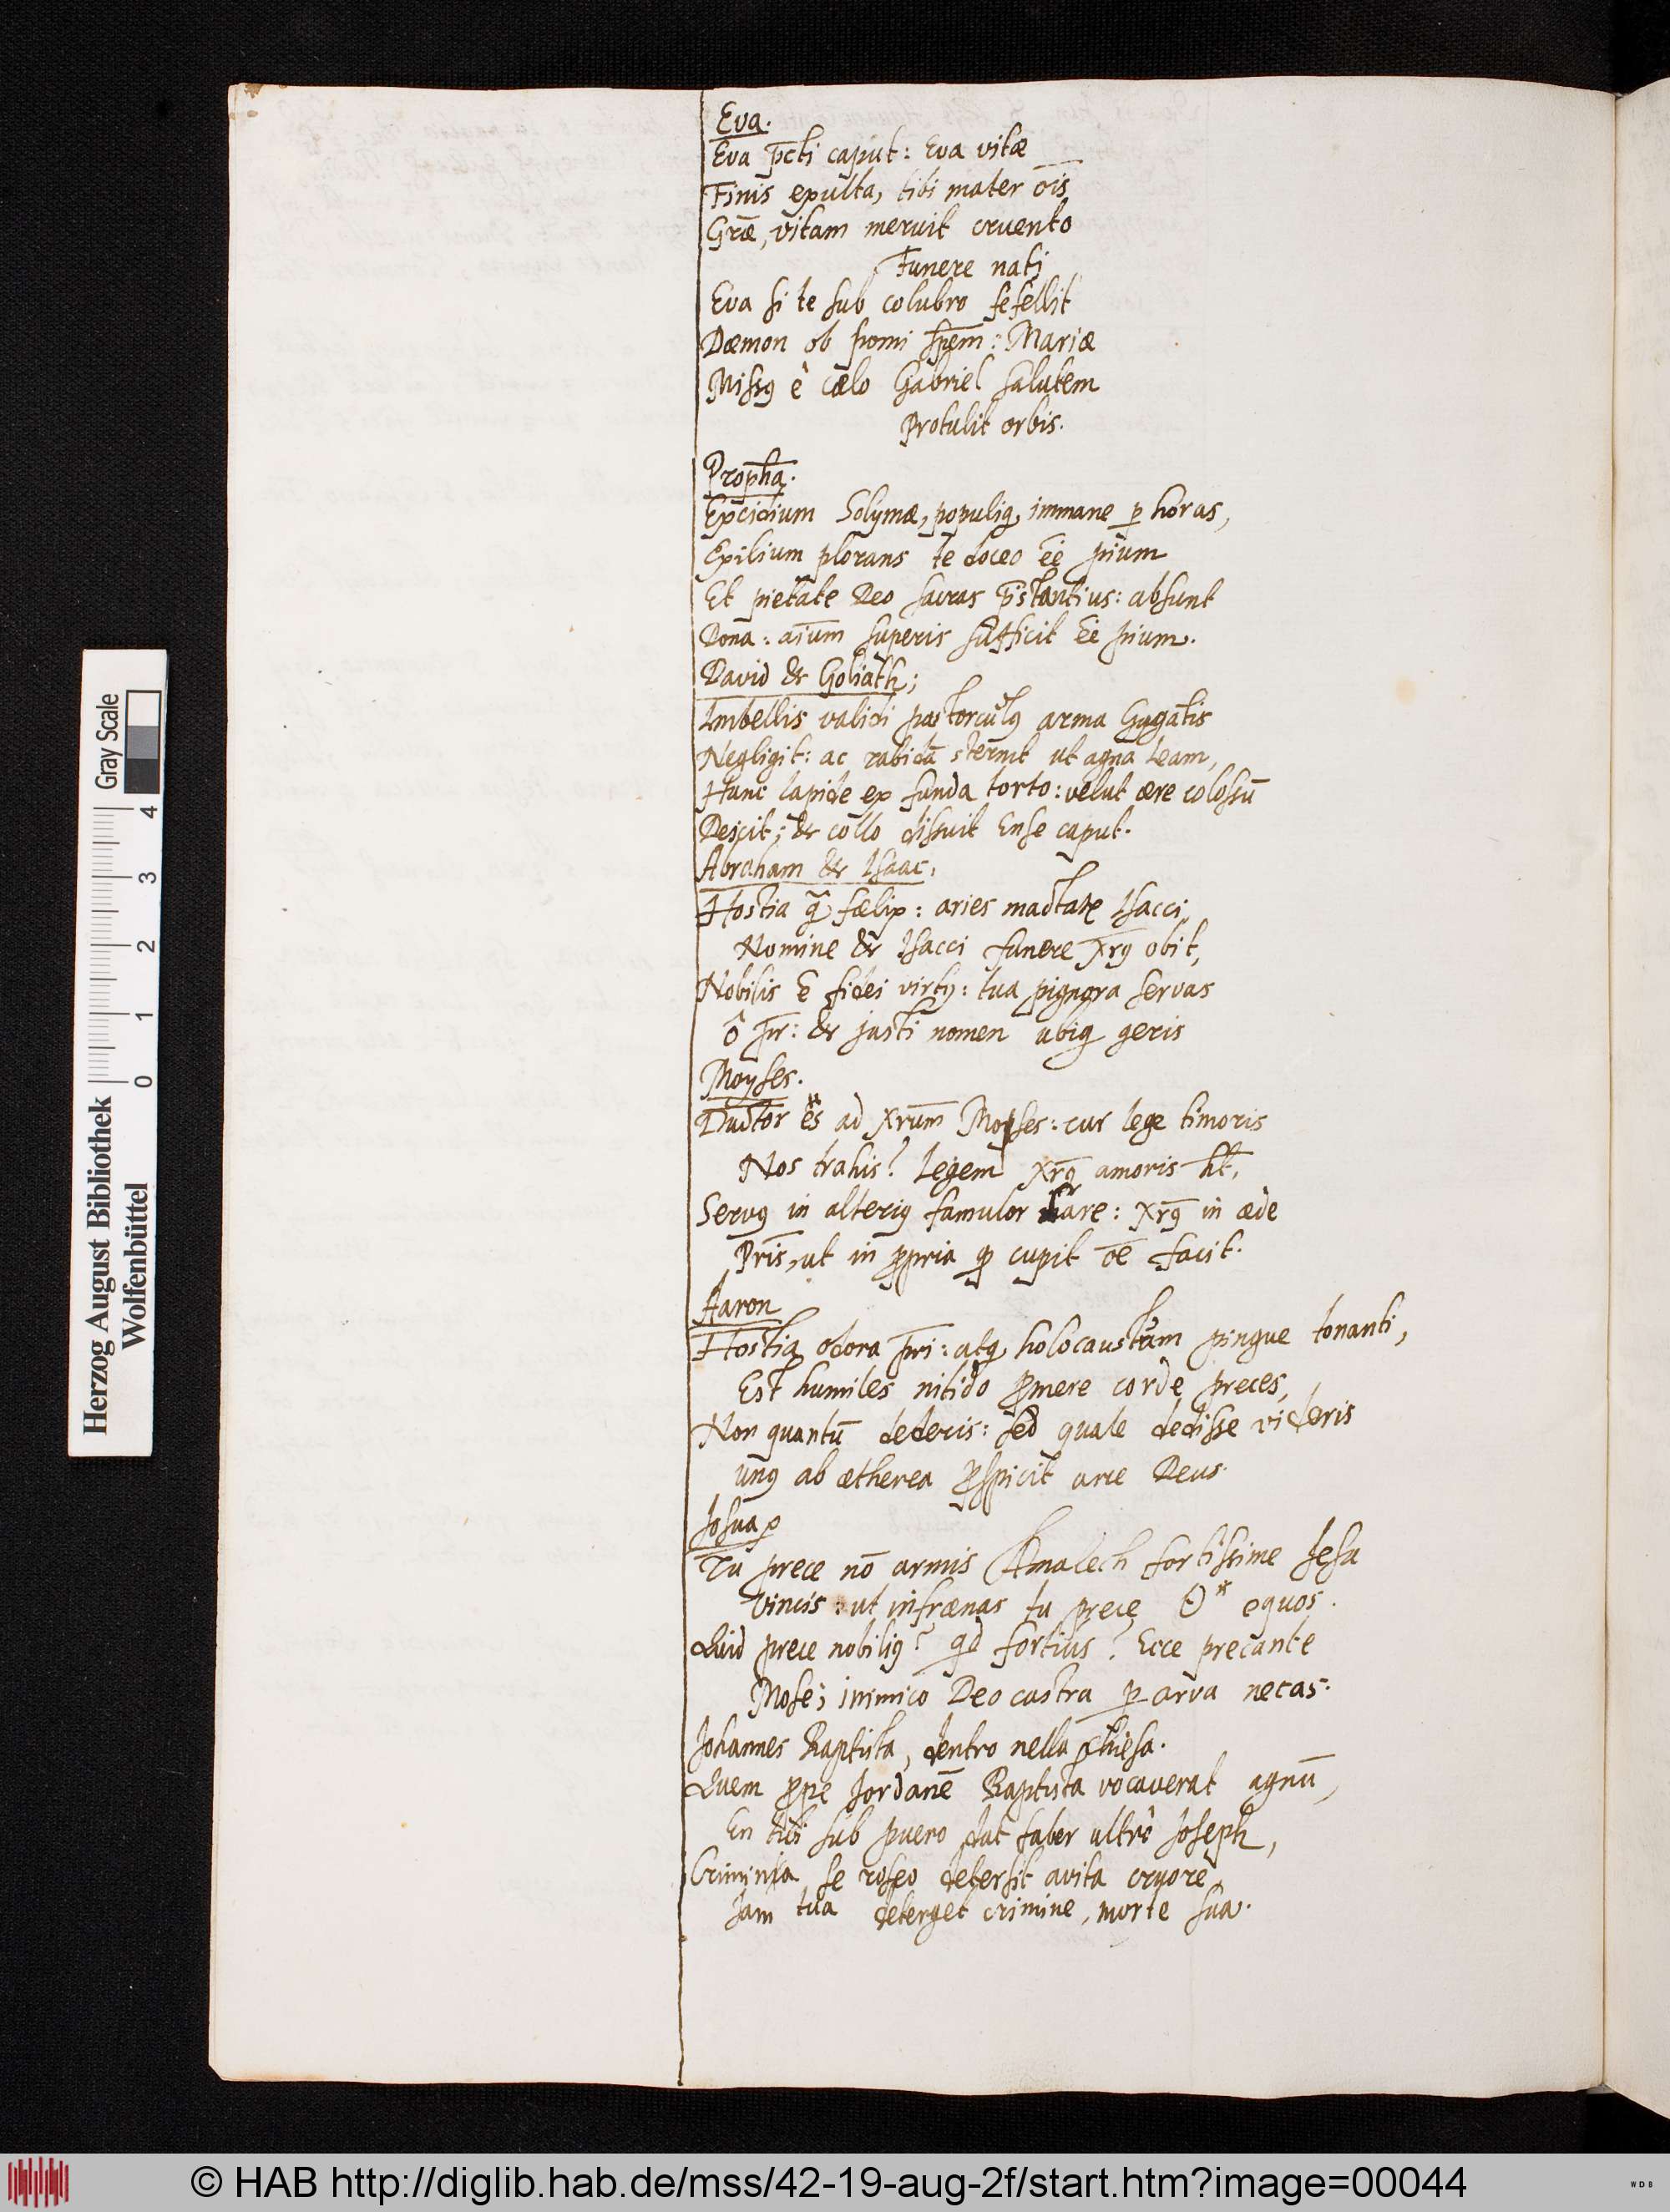 Eva.
Eva p̄cti caput: Eva vitæ
Finis exulta, tibi mater ōis
Grāe, vitam meruit cruento
Funere nati
Eva si te sub colubro fefellit
Dæmon ob pomi sp̄em: Mariæ
Missꝰ è cælo Gabriel salutem
Protulit orbis.
Proph̄a.
Excidium Solymæ, populiqꝫ immane ꝑ horas,
Exilium plorans te doceo ēē pium
Et pietate Deo sacras p̄stantius: absunt
Dona: aīum superis sufficit ēē pium.
David & Goliath;
Imbellis validi pastorculꝰ arma Gygātis
Negligit: ac rabidā sternit ut agna leam,
Hunc lapide ex funda torto: velut ære colossū
Dejcit; & collo dissuit Ense caput.
Abraham & Isaac,
Hostia q̄ fælix: aries mactatꝰ Isacci,
Nomine & Isacci funere Xrꝰ obit,
Nobilis ē fidei virtꝰ: tua pignora servas
ô p̄r: & justi nomen ubiqꝫ geris
Moyses.
Ductor es* ad Xrūm Moyses: cur lege timoris
Nos trahis? Legem Xrꝰ amoris h̄t,
Servꝰ in alteriꝰ famulor lare: Xrꝰ in æde
Pr̄is, ut in ꝓpria qꝫ cupit ōē facit.
Aaron
Hostia odora p̄ri: atqꝫ holocaustum pingue tonanti,
Est humiles nitido ꝓmere corde preces,
Non quantū dederis: sed quale dedisse videris
unꝰ ab ætherea ꝓspicit arce Deus.
Josua
Tu prece nō armis Amalech fortissime Jesu
Vincis: ut infrænas tu prece ☉* equos.
Quid prece nobiliꝰ? qd fortius? Ecce precante
Mose; inimico Deo castra ꝑ arva necas.
Johannes Baptista, dentro nella chiesa.
Quem ꝓpe Jordanē Baptista vocaverat agnū,
En tibi sub puero dat faber ultrò Joseph,
Crimina se roseo detersit avita cruore,
Jam tua deterget crimine, morte sua.
Herzog August Bibliothek
Wolfenbüttel
0 1 2 3 4
Gray Scale
© HAB http://diglib.hab.de/mss/42-19-aug-2f/start.htm?image=00044
WDB